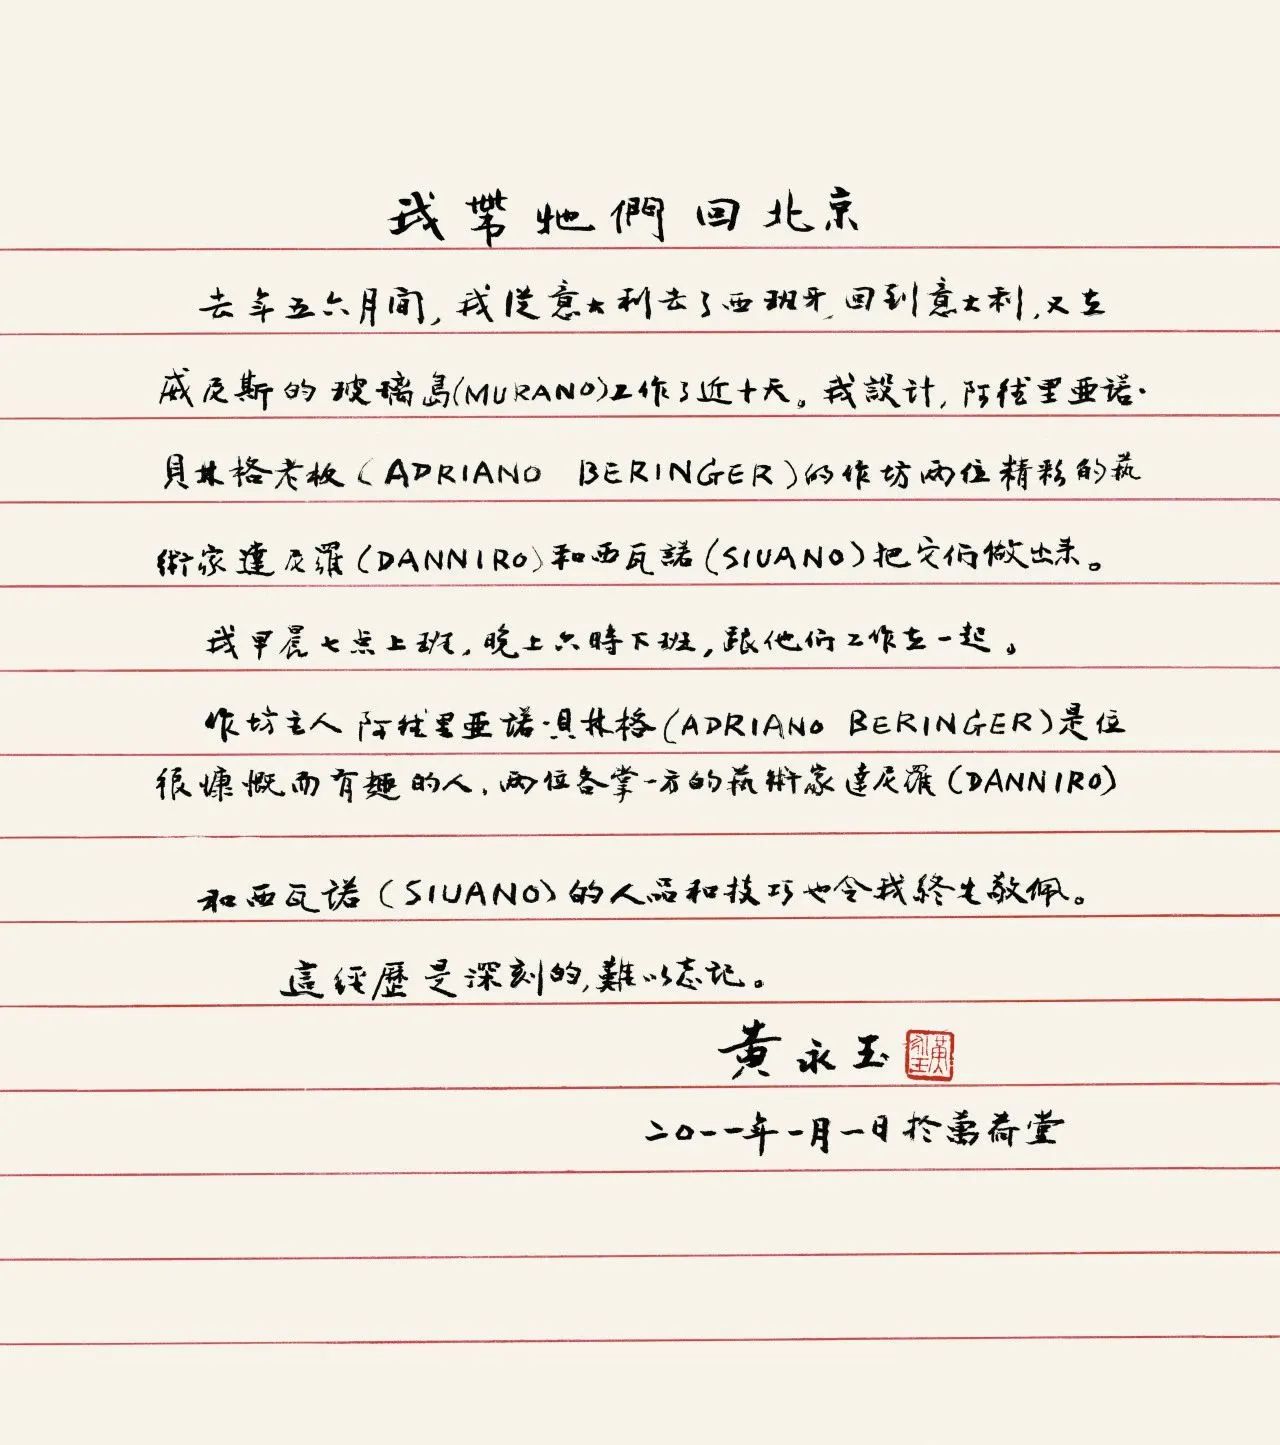 我帶牠們回北京
去年五六月间,我從意大利去了西班牙,回到意大利,又在
威尼斯的玻璃島(MURANO)工作了近十天。我設计,阿德里亚诺·
貝林格老板(ADRIANO BERINGER)的作坊两位精彩的藝
術家達尼羅(DANNIRO)和西瓦諾(SIUANO)把它们做出来。
我早晨七点上班,晚上六時下班,跟他们工作在一起。
作坊主人阿德里亚诺·貝林格(ADRIANO BERINGER)是位
很慷慨而有趣的人,两位各掌一方的藝術家達尼羅(DANNIRO)
和西瓦諾(SIUANO)的人品和技巧也令我終生敬佩。
這經歷是深刻的,難以忘記。
黄永玉
黄永玉
二〇一一年一月一日於萬荷堂